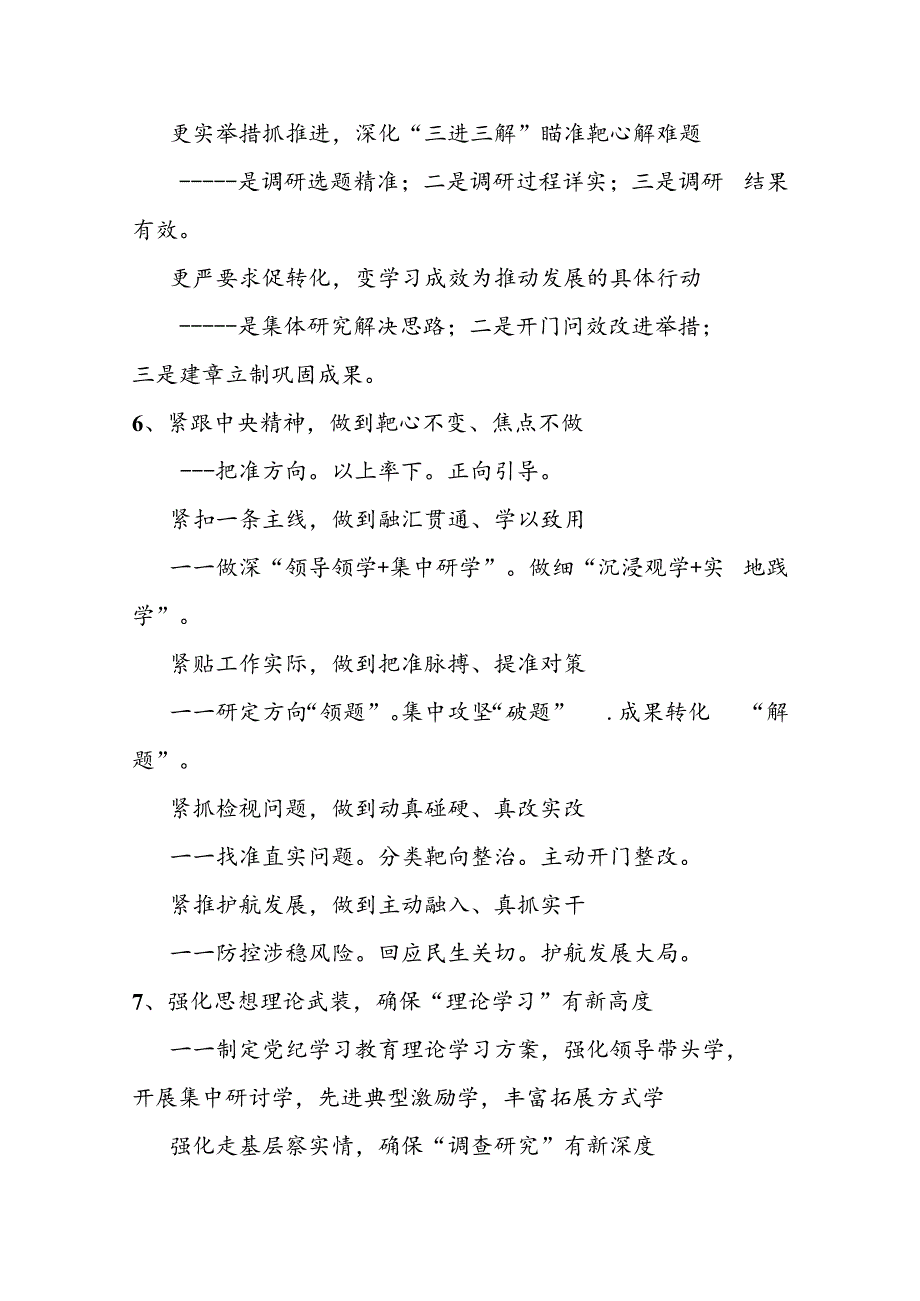 更实举措抓推进，深化“三进三解”瞄准靶心解难题
-----是调研选题精准；二是调研过程详实；三是调研 结果
有效。
更严要求促转化，变学习成效为推动发展的具体行动
-----是集体研究解决思路；二是开门问效改进举措；
三是建章立制巩固成果。
6、紧跟中央精神，做到靶心不变、焦点不做
---把准方向。以上率下。正向引导。
紧扣一条主线，做到融汇贯通、学以致用
一一做深“领导领学+集中研学”。做细“沉浸观学+实 地践
学”。
紧贴工作实际，做到把准脉搏、提准对策
一一研定方向“领题”。集中攻坚“破题” .成果转化 “解
题”。
紧抓检视问题，做到动真碰硬、真改实改
一一找准直实问题。分类靶向整治。主动开门整改。
紧推护航发展，做到主动融入、真抓实干
一一防控涉稳风险。回应民生关切。护航发展大局。
7、强化思想理论武装，确保“理论学习”有新高度
一一制定党纪学习教育理论学习方案，强化领导带头学，
开展集中研讨学，先进典型激励学，丰富拓展方式学
强化走基层察实情，确保“调查研究”有新深度